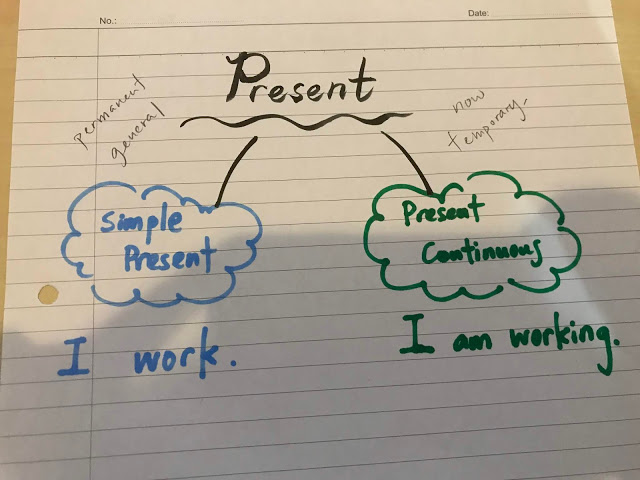 No.:
Date:
Present
permanent
general
now
temporary.
Simple
Present
Present
Continuous
I work.
I am working.